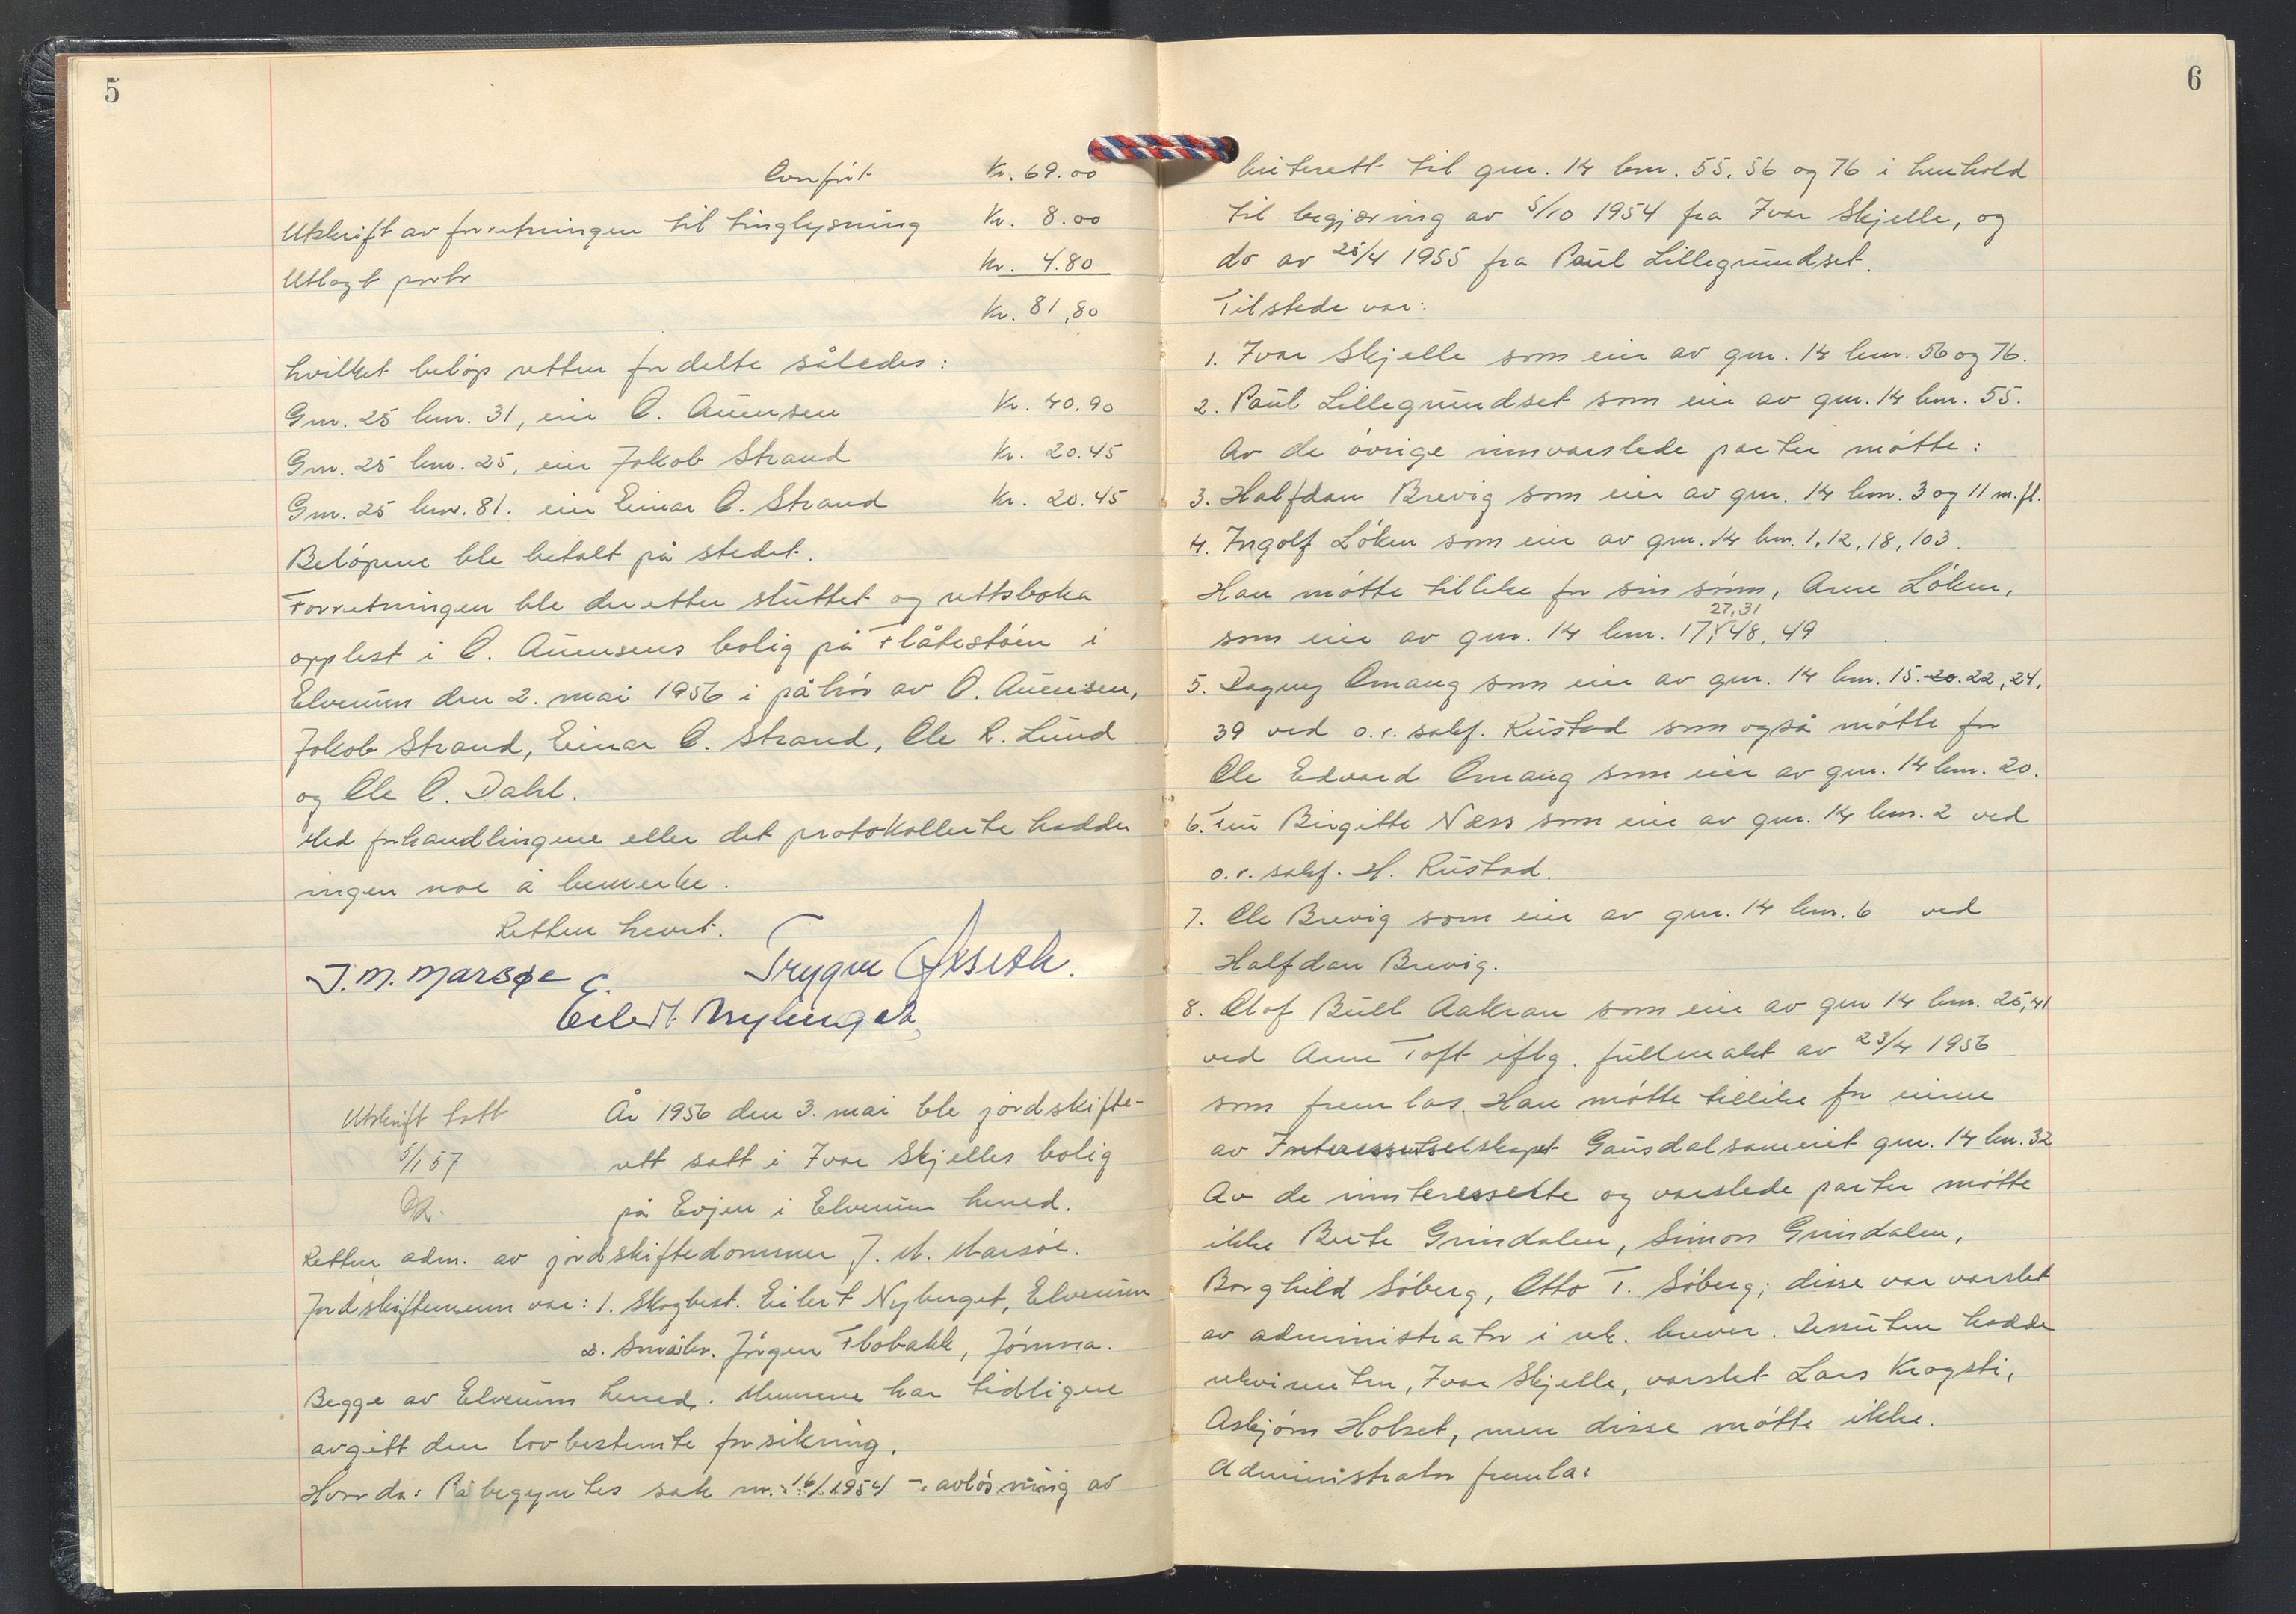 5
Overført Kr. 69.00
Utskrift av forretningen til tinglysning Kr. 8.00
Utlagt porto Kr. 4.80
Kr. 81,80
hvilket beløp retten fordelte således:
Gnr. 25 bnr. 31, eier O. Auensen Kr. 40.90
Gnr. 25 bnr. 25, eier Jakob Strand Kr. 20.45
Gnr. 25 bnr. 81. eier Einar O. Strand Kr. 20.45
Beløpene ble betalt på stedet.
Forretningen ble deretter sluttet og rettsboka
opplest i O. Auensens bolig på Flåtestøen i
Elverum den 2. mai 1956 i påhør av O. Auensen,
Jakob Strand, Einar O. Strand, Ole R. Lund
og Ole O. Dahl.
Med forhandlingene eller det protokollerte hadde
ingen noe å bemerke.
Retten hevet.
J. M. Marsøe Trygve
Eilert Nyberget
Utskrift tatt
5/1 57
År 1956 den 3. mai ble jordskifte-
rett satt i Ivar Skjelles bolig
på Evjen i Elverum herred.
Retten adm. av jordskiftedommer J. M. Marsøe.
Jordskiftemenn var: 1. Skogbest. Eilert Nyberget, Elverum
2. Småbr. Jørgen Flobakk, Jømna.
Begge av Elverum herred. Mennene har tidligere
avgitt den lovbestemte forsikring.
Hvorda: Påbegyntes sak nr. 16/1954 - avløsning av
6
beiterett til gnr. 14 bnr. 55. 56 og 76 i henhold
til begjæring av 5/10 1954 fra Ivar Skjelle, og
do av 25/4 1955 fra Paul Lillegrundset.
Tilstede var:
1. Ivar Skjelle som eier av gnr. 14 bnr. 56 og 76.
2. Paul Lillegrundset som eier av gnr. 14 bnr. 55.
Av de øvrige innvarslede parter møtte:
3. Halfdan Brevig som eier av gnr. 14 bnr. 3 og 11 m. fl.
4. Ingolf Løken som eier av gnr. 14 bnr. 1, 12, 18, 103.
Han møtte tillike for sin sønn, Arne Løken,
27, 31
som eier av gnr. 14 bnr. 17, 48, 49
5. Dagny Omang som eier av gnr. 14 bnr. 15. 20. 22, 24,
39 ved o.r. sakf. Rustad som også møtte for
Ole Edvard Omang som eier av gnr. 14 bnr. 20.
6. Fru Birgitte Næss som eier av gnr. 14 bnr. 2 ved
o.r. sakf. H. Rustad.
7. Ole Brevig som eier av gnr. 14 bnr. 6 ved
Halfdan Brevig.
8. Olof Bull Aakran som eier av gnr 14 bnr. 25, 41
ved Arne Toft iflg. fullmakt av 23/4 1956
som fremlas. Han møtte tillike for eierne
av Interessentselskapet Gausdalsameiet gnr. 14 bnr. 32
Av de innteressete og varslede parter møtte
ikke Berte Grindalen, Simon Grindalen,
Borghild Søberg, Otto T. Søberg; disse var varslet
av administrator i rek. brever. Dessuten hadde
rekvirenten, Ivar Skjelle, varslet Lars Krogsti,
Asbjørn Holset, men disse møtte ikke.
Administrator fremla: